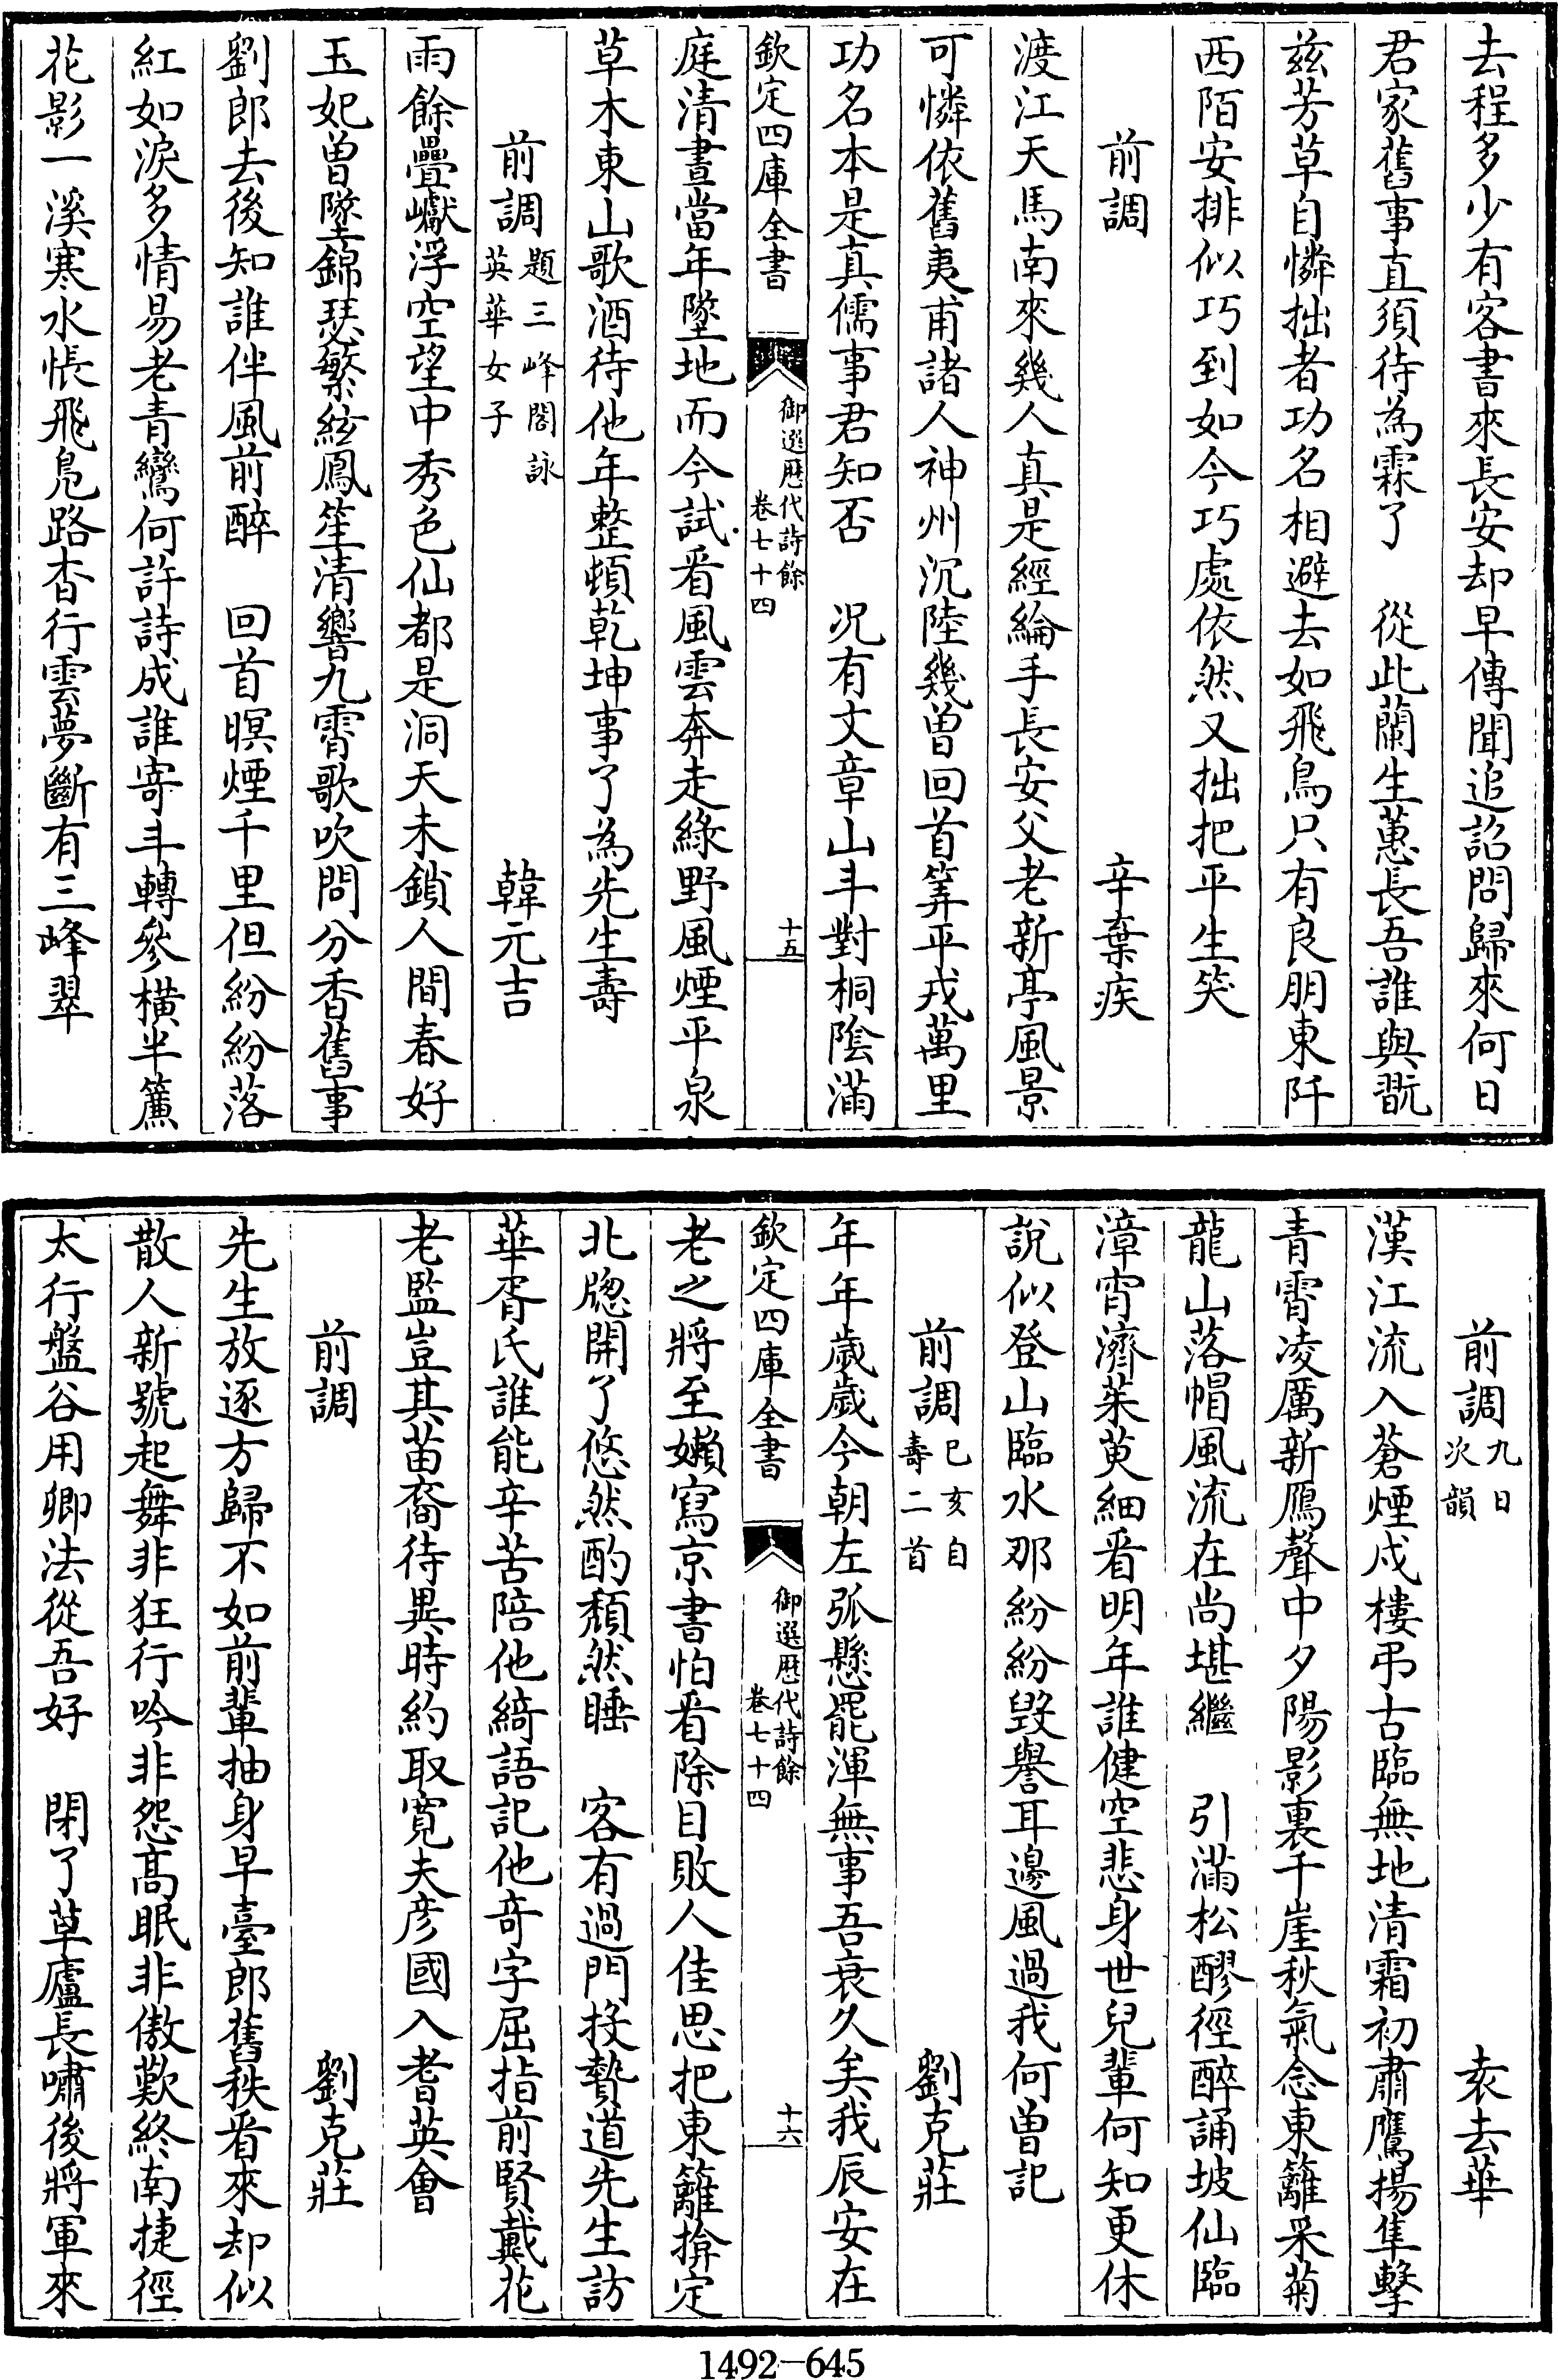 去程多少有客書來長安却早傳聞追詔問歸來何日
君家舊事直須待為霖了　從此蘭生蕙長吾誰與翫
兹芳草自憐拙者功名相避去如飛鳥只有良朋東阡
西陌安排似巧到如今巧處依然又拙把平生笑
前調　辛棄疾
渡江天馬南來幾人真是經綸手長安父老新亭風景
可憐依舊夷甫諸人神州沉陸幾曾回首筭平戎萬里
功名本是真儒事君知否　况有文章山斗對桐陰滿
欽定四庫全書　御選歷代詩餘　卷七十四　十五
庭清晝當年墜地而今試看風雲奔走綠野風煙平泉
草木東山歌酒待他年整頓乾坤事了為先生壽
前調　題三峰閣詠英華女子　韓元吉
雨餘疊巘浮空望中秀色仙都是洞天未鎖人間春好
玉妃曾墜錦瑟繁絃鳳笙清響九霄歌吹問分香舊事
劉郎去後知誰伴風前醉　回首暝煙千里但紛紛落
紅如淚多情易老青鸞何許詩成誰寄斗轉參橫半簾
花影一溪寒水悵飛鳧路杳行雲夢斷有三峰翠
前調　九日次韻　袁去華
漢江流入蒼煙戍樓弔古臨無地清霜初肅鷹揚隼擊
青霄凌厲新鴈聲中夕陽影裏千崖秋氣念東籬采菊
龍山落帽風流在尚堪繼　引滿松醪徑醉誦坡仙臨
漳宵濟茱萸細看明年誰健空悲身世兒輩何知更休
說似登山臨水那紛紛毀譽耳邊風過我何曾記
前調　己亥自壽二首　劉克莊
年年歲歲今朝左弧懸罷渾無事吾衰久矣我辰安在
欽定四庫全書　御選歷代詩餘　卷七十四　十六
老之將至嬾寫京書怕看除目敗人佳思把東籬揜定
北牕開了悠然酌頹然睡　客有過門投贄道先生訪
華胥氏誰能辛苦陪他綺語記他奇字屈指前賢戴花
老監豈其苗裔待異時約取寬夫彥國入耆英會
前調　劉克莊
先生放逐方歸不如前輩抽身早臺郎舊秩看來却似
散人新號起舞非狂行吟非怨高眠非傲歎終南捷徑
太行盤谷用卿法從吾好　閉了草廬長嘯後將軍來
1492—645